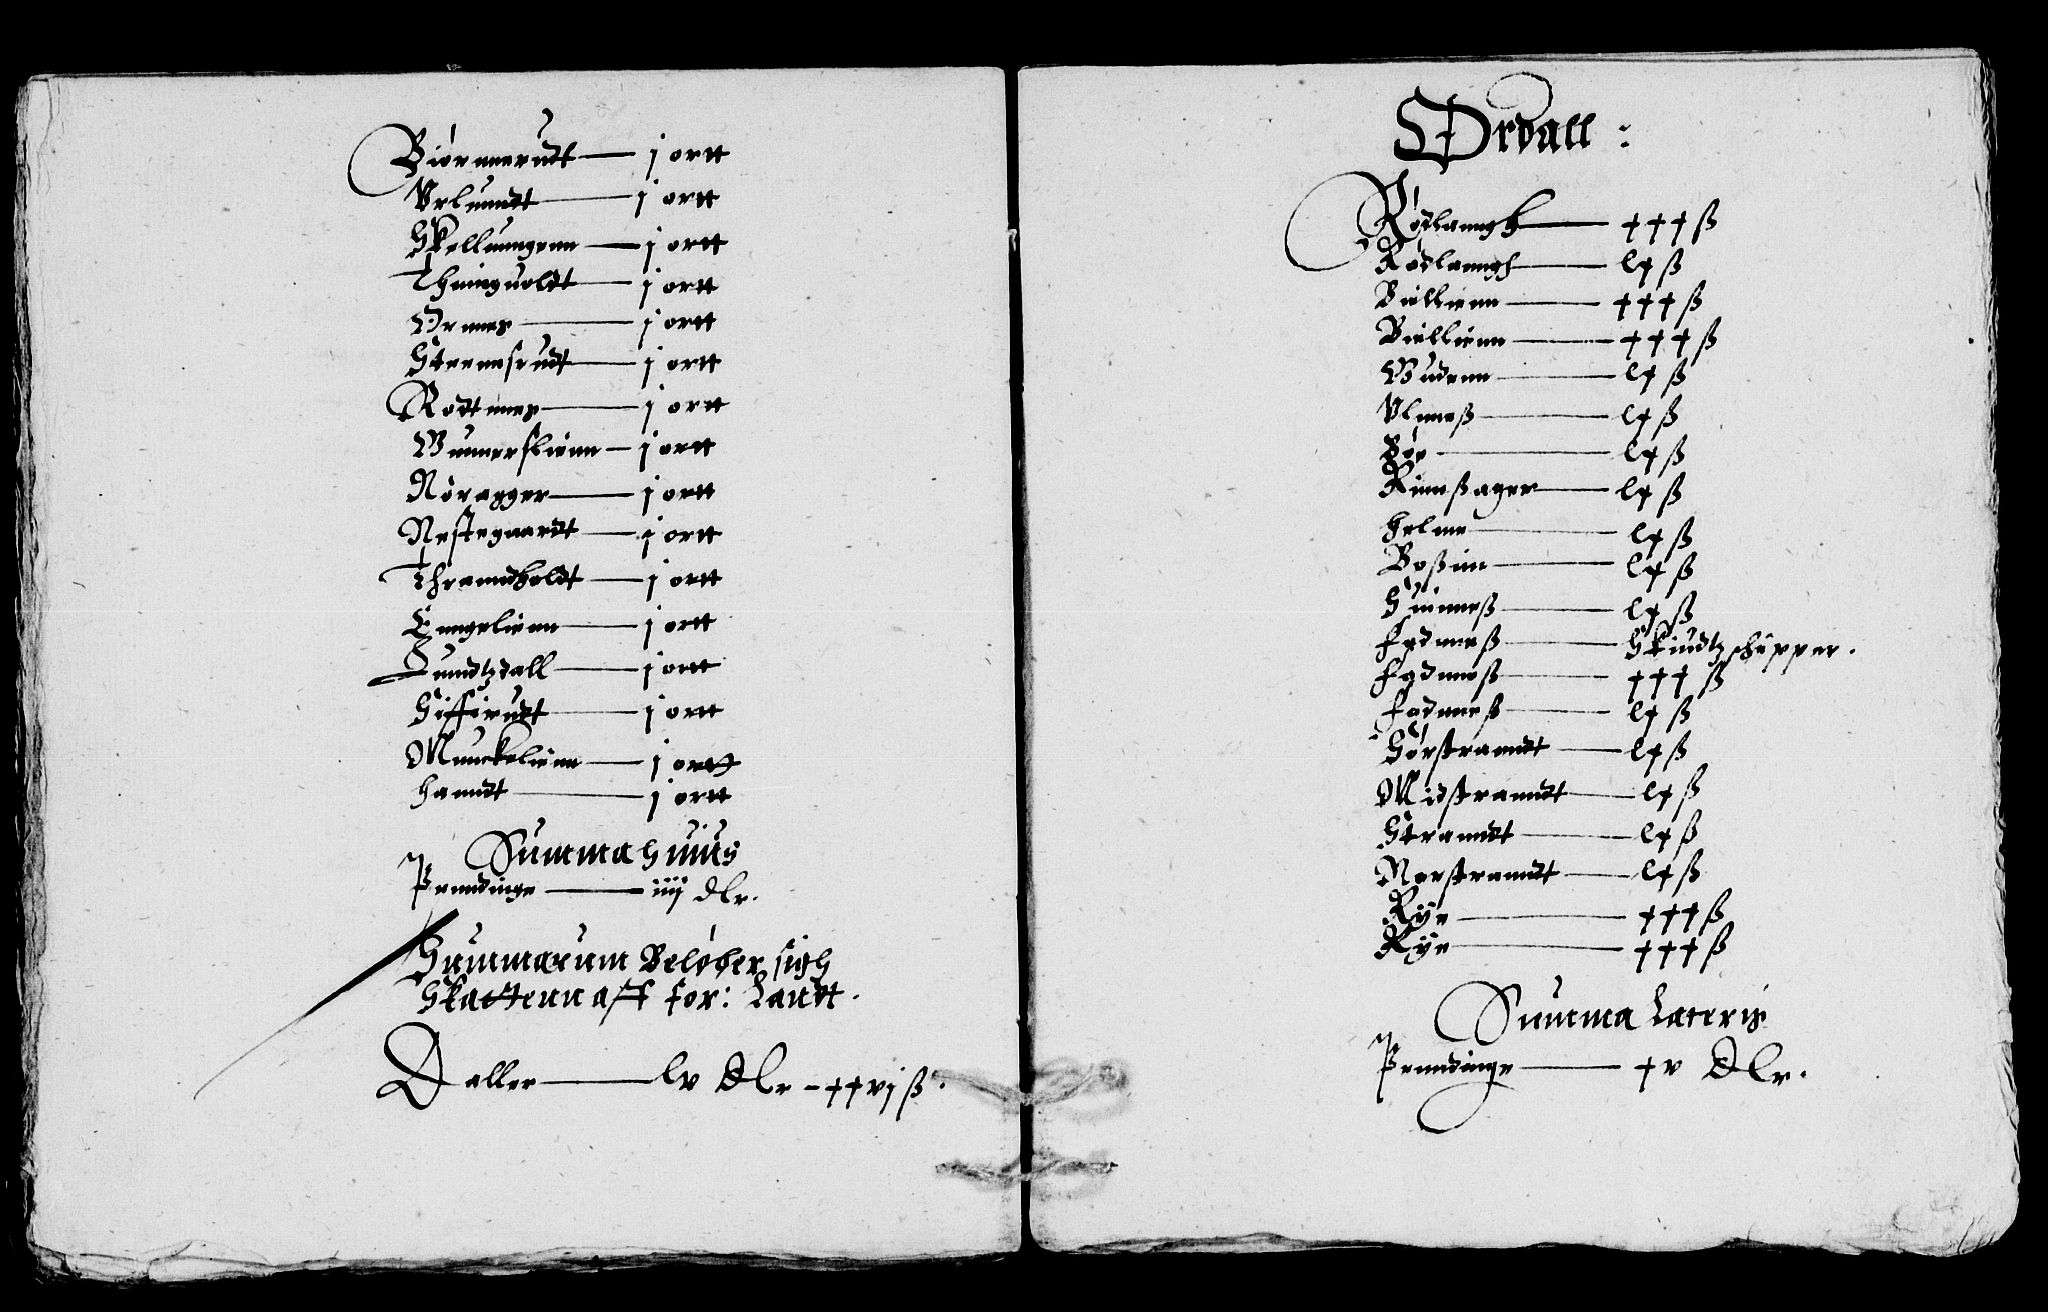 Biørnnerudt — j ortt
Vrlunndt — j ortt
Skollunngenn — j ortt
Thinnguoldt — j ortt
Ornnes — j ortt
Steennsrudt — j ortt
Rodtnnes — j ortt
Gunnerslienn — j ortt
Nøragger — j ortt
Nestegaardt — j ortt
Thranndholdt — j ortt
Enngelienn — j ortt
Lunndtzdall — j ortt
Siffirudt — j ortt
Munckelienn — j ortt
Hanndt — j ortt
Summa Huius
Penndinge — iiij dlr.
Summarum Beløber sigh
Skattenn aff for: Landt.
Daller — lv dlr – xxvj ß.
Ørdall:
Rødlanngh — xxx ß
Rødlanngh — lx ß
Biellienn — xxx ß
Biellienn — xxx ß
Gudenn — lx ß
Vlnneß — lx ß
Bøe — lx ß
Rinnßager — lx ß
Helnne — lx ß
Boßinn — lx ß
Suinneß — lx ß
Fodnneß — Skiudtzschipper.
Fodnneß — xxx ß
Fodnneß — lx ß
Sørstranndt — lx ß
Midstranndt — lx ß
Stranndt — lx ß
Norstranndt — lx ß
Rye — xxx ß
Rye — xxx ß
Summa Lateris
Penndinge — xv dlr.